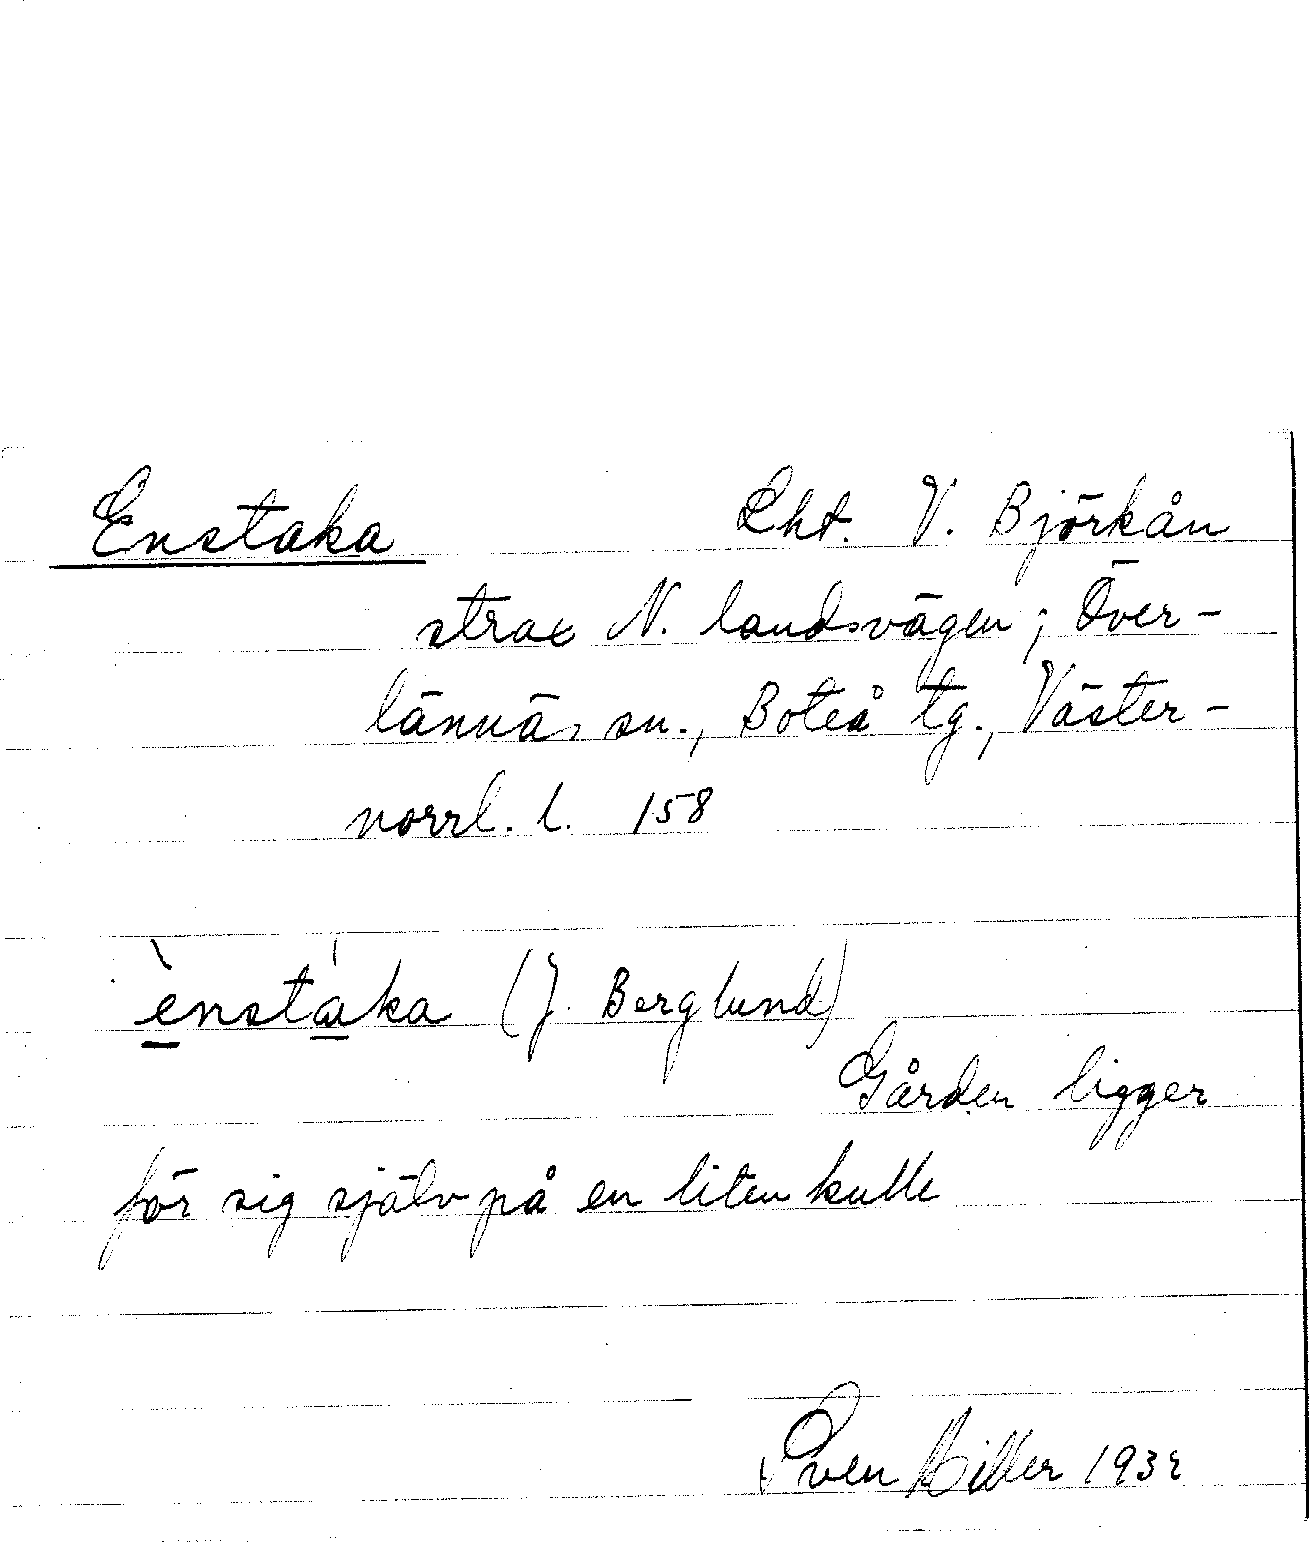 Enstaka Lht. V. Björkån
strax N. landsvägen; Över-
lännäs sn., Boteå tg., Väster-
norrl. l. 158
ènstáka (J. Berglund)
Gården ligger
för sig själv på en liten kulle
Sven Hiller 1932